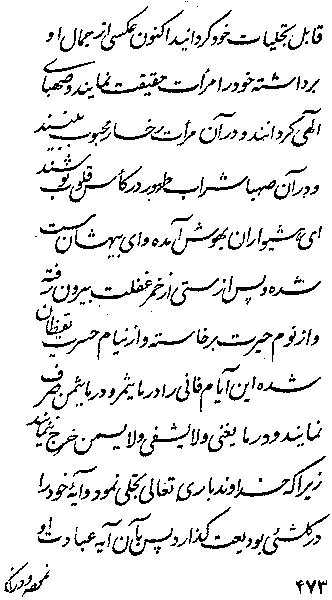 قابل تجلیات خود کردانید اکنون عکسی از جمال او
برداشته خود را مرآت حقیقت نمایند و صهبای
الهی کردانند و در آن مرآت رخسار محبوب ببینند
و در آن صهبا شراب طهور در کأس قلوب نوشند
ای هشیاران بهوش آمده و ای بیهشان مست
شده و پس از مستی از خمر غفلت بیرون رفته
و از نوم حیرت برخاسته و از نیام حسرت یقظان
شده این ایام فانی را در ما یثمر و در ما یثمن صرف
نمایند و در ما یغنی و لا یشفی و لا یسمن خرج ننمایند
زیرا که خداوند باری تعالی تجلی نمود و آیهٔ خود را
در کلشئی بودیعت گذارد پس بآن آیه عبادت او
۴۷۳